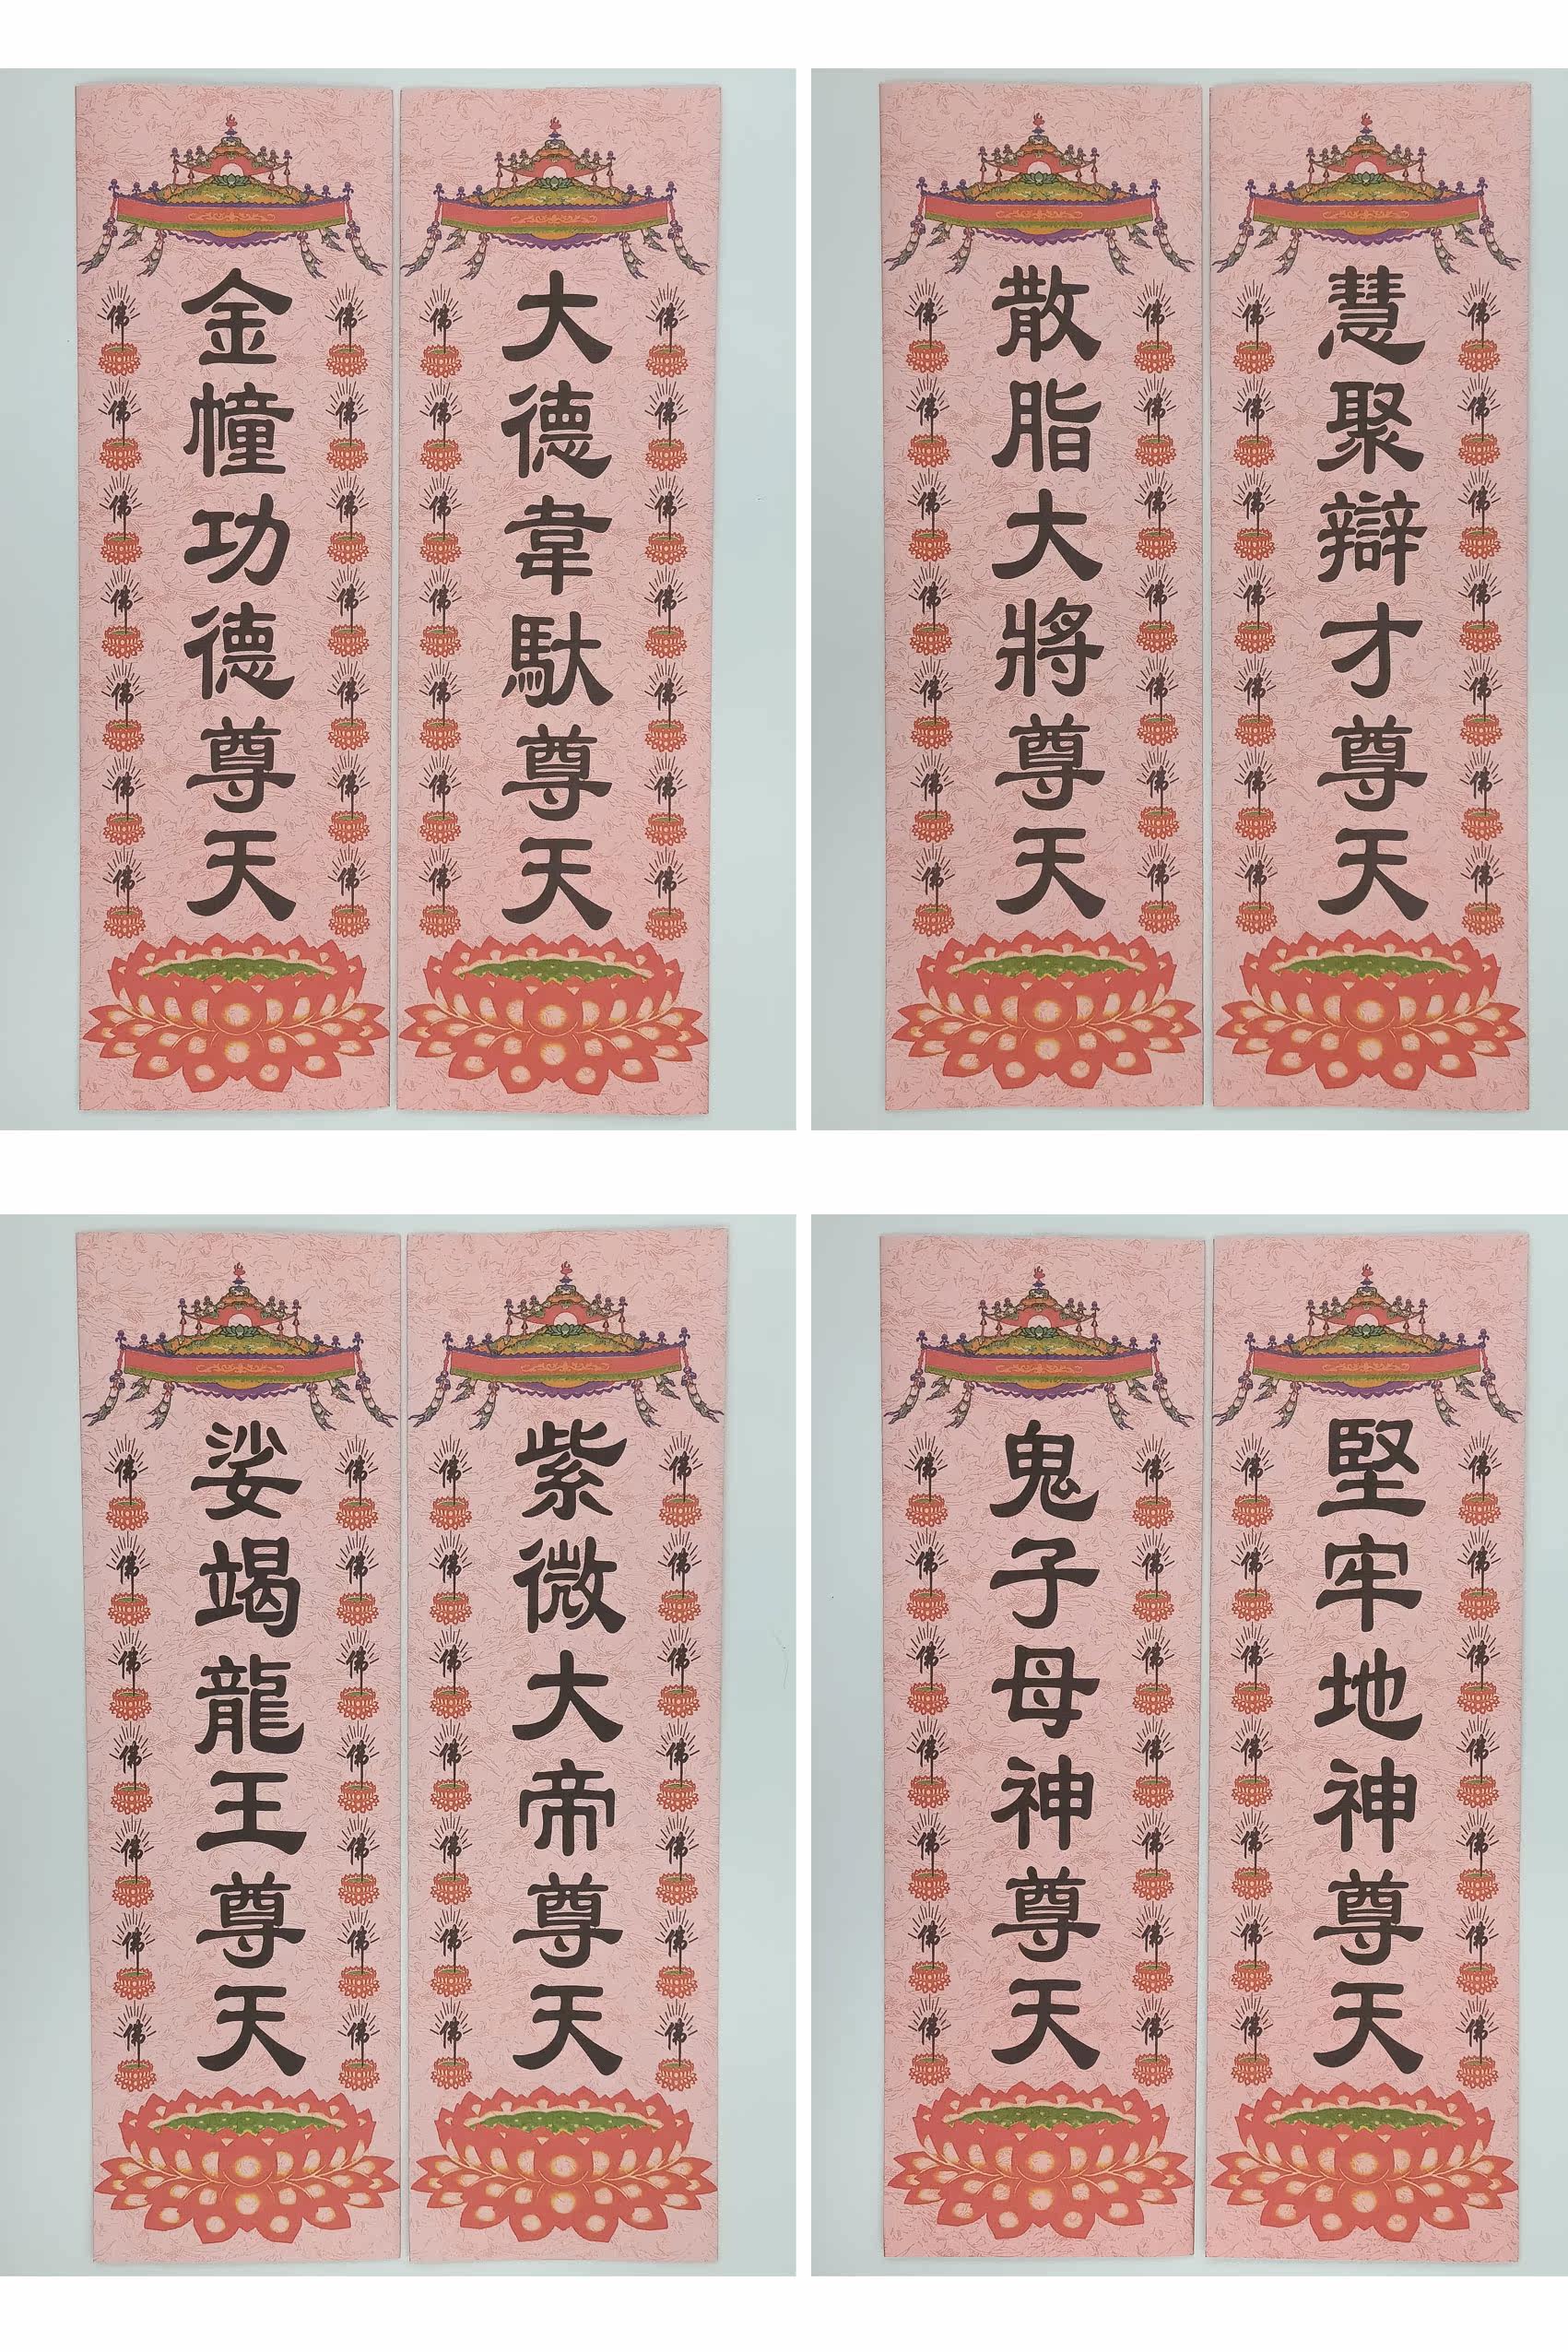 佛佛佛佛佛佛佛
金幢功德尊天
佛佛佛佛佛佛佛
佛佛佛佛佛佛佛
大德韋馱尊天
佛佛佛佛佛佛佛
佛佛佛佛佛佛佛
散脂大將尊天
佛佛佛佛佛佛佛
佛佛佛佛佛佛佛
慧聚辯才尊天
佛佛佛佛佛佛佛
佛佛佛佛佛佛佛
娑竭龍王尊天
佛佛佛佛佛佛佛
佛佛佛佛佛佛佛
紫微大帝尊天
佛佛佛佛佛佛佛
佛佛佛佛佛佛佛
鬼子母神尊天
佛佛佛佛佛佛佛
佛佛佛佛佛佛佛
堅牢地神尊天
佛佛佛佛佛佛佛